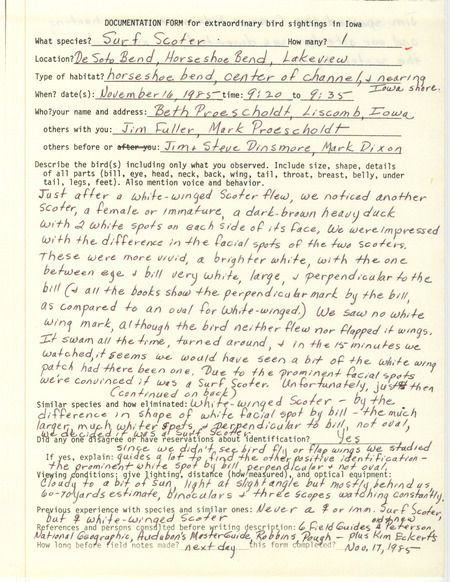 DOCUMENTATION FORM for extraordinary bird sightings in Iowa
What species? Surf Scoter How many? 1
Location? DeSoto Bend, Horseshoe Bend, Lakeview
Type of habitat? horseshoe bend, center of channel, & nearing
Iowa shore.
When? date(s): November 16, 1985 time: 9:20 to 9:35
Who? your name and address: Beth Proescholdt, Liscomb, Iowa
others with you: Jim Fuller, Mark Proescholdt
others before or after you: Jim & Steve Dinsmore, Mark Dixon
Describe the bird(s) including only what you observed. Include size, shape, details
of all parts (bill, eye, head, neck, back, wing, tail, throat, breast, belly, under
tail, legs, feet). Also mention voice and behavior.
Just after a white-winged Scoter flew, we noticed another
Scoter, a female or immature, a dark-brown heavy duck
with 2 white spots on each side of its face. We were impressed
with the difference in the facial spots of the two scoters.
These were more vivid, a brighter white, with the one
between eye & bill very white, large, & perpendicular to the
bill (& all the books show the perpendicular mark by the bill,
as compared to an oval for White-winged.) We saw no white
wing mark, although the bird neither flew nor flapped it wings.
It swam all the time, turned around, & in the 15 minutes we
watched, it seems we would have seen a bit of the white wing
patch had there been one. Due to the prominent facial spots
we're convinced it was a Surf Scoter. Unfortunately, just then
(Continued on back)
Similar species and how eliminated: White-winged Scoter - by the
difference in shape of white facial spot by bill - the much
larger, much whiter spots & perpendicular to bill, not oval,
we decided it was a Surf Scoter.
Did any one disagree or have reservations about identification? Yes
since we didn't see bird fly or flap wings we studied
If yes, explain: guides a lot to find the other positive identification -
the prominent white spot by bill, perpendicular & not oval.
Viewing conditions: give lighting, distance (how measured), and optical equipment:
Cloudy to a bit of sun, light at slight angle but mostly behind us,
60-70 yards estimate, binoculars & three scopes watching constantly.
Previous experience with species and similar ones: Never a ♀ or imm. Surf Scoter,
but ♀ white-winged Scoter
References and persons consulted before writing description: 6 Field Guides Peterson,
National Geographic, Audubon's Master Guide, Robbins, Pough - plus Kim Eckert's
How long before field notes made? next day this form completed? Nov. 17, 1985